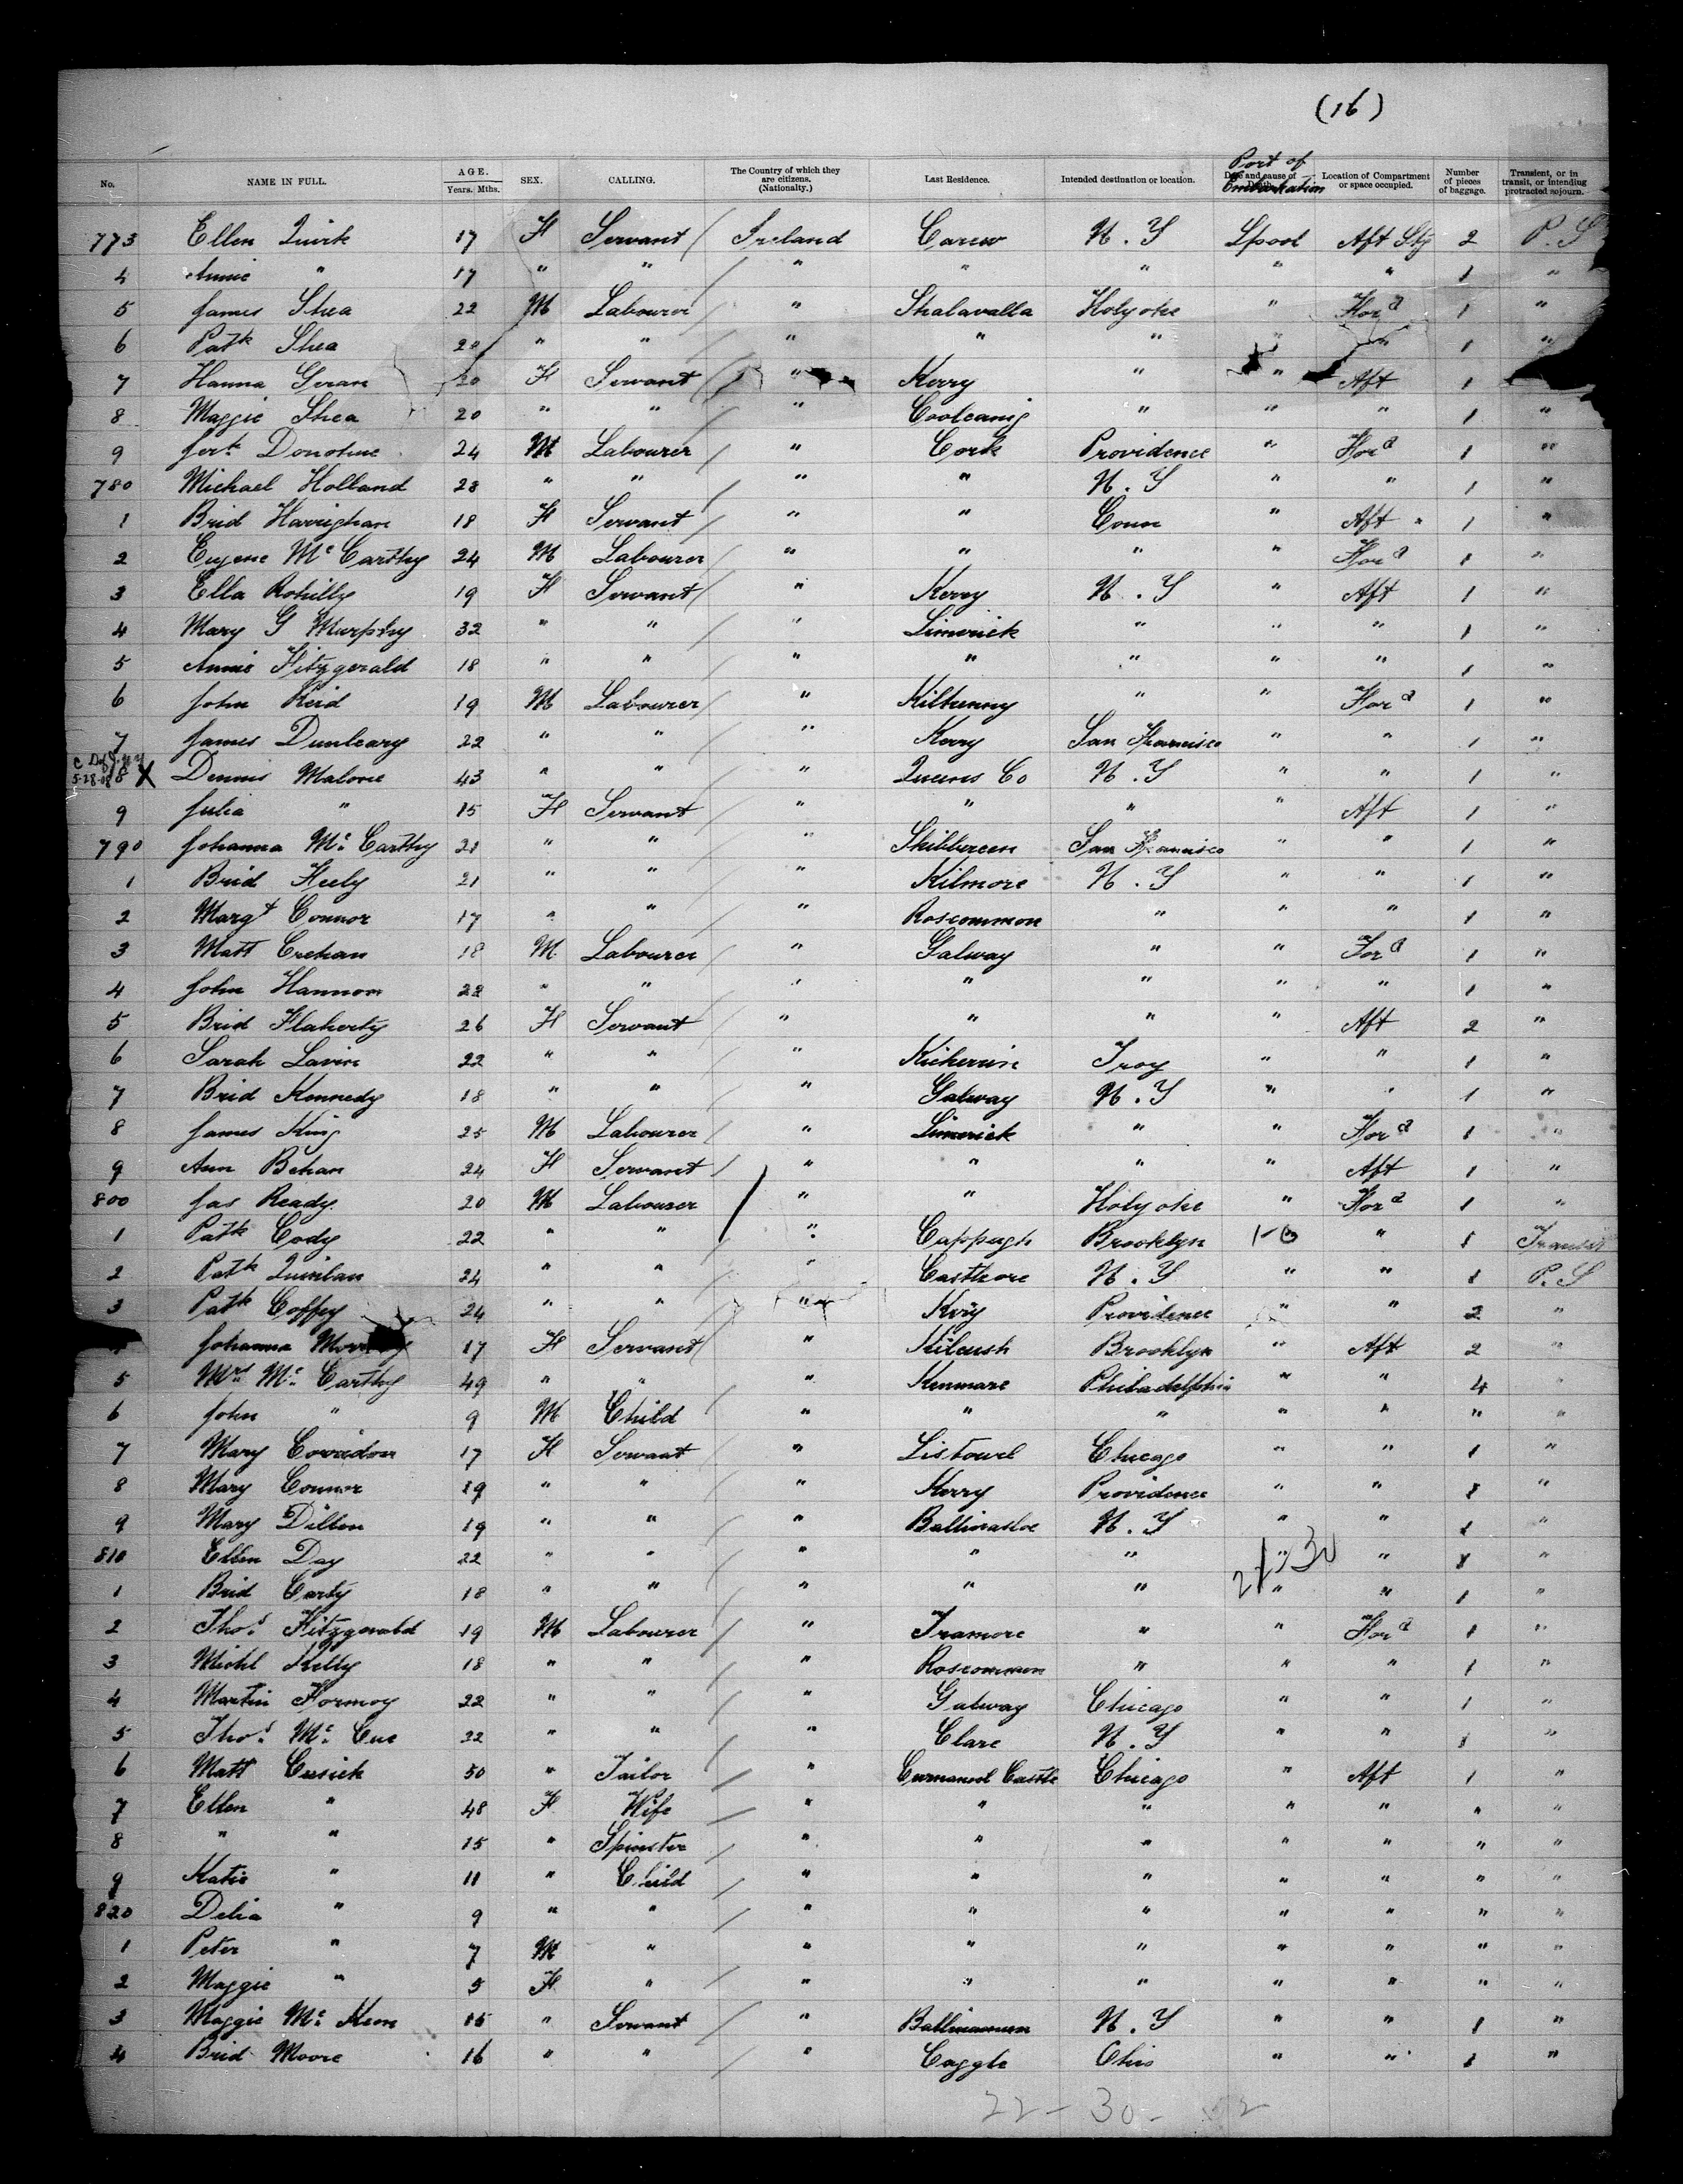 (16)
Port of Embarkation
No. NAME IN FULL. AGE. Years. Mths. SEX. CALLING. The Country of which they are citizens. (Nationality.) Last Residence. Intended destination or location. Date and cause of Location of Compartment or space occupied. Number of pieces of baggage. Transient, or in transit, or intending protracted sojourn.
773 Ellen Quirk 17 F Servant / Ireland Carew N.Y Lpool Aft Stg 2 P.S
4 Annie " 17 " " / " " " " " 1 "
5 James Shea 22 M Labourer / " Shalavalla Holyoke " For d 1 "
6 Patk Shea 20 " " / " " " " " 1 "
7 Hanna Geran 20 F Servant / " Kerry " " Aft 1
8 Maggie Shea 20 " " " Cooleanig " " " 1 "
9 Jerh Donohue 24 M Labourer / " Cork Providence " For d 1 "
780 Michael Holland 28 " " / " " N.Y " " 1 "
1 Brid Harrighan 18 F Servant / " " Conn " Aft " 1 "
2 Eugene Mc Carthy 24 M Labourer / " " " " For d 1 "
3 Ella Rohilly 19 F Servant / " Kerry N.Y " Aft 1 "
4 Mary G Murphy 32 " " / " Limerick " " " 1 "
5 Annie Fitzgerald 18 " " / " " " " " 1 "
6 John Reid 19 M Labourer / " Kilkenny " " For d 1 "
7 James Dunleary 22 " " / " Kerry San Francisco " " 1 "
5-28-08 8 X Dennis Malone 43 " " / " Queens Co N.Y " " 1 "
9 Julia " 15 F Servant / " " " " Aft 1 "
790 Johanna Mc Carthy 21 " " / " Skibbereen San Francisco " " 1 "
1 Brid Heely 21 " " / " Kilmore N.Y " " 1 "
2 Margt Connor 17 " " / " Roscommon " " " 1 "
3 Matt Crehan 18 M Labourer / " Galway " " For d 1 "
4 John Hannon 22 " " / " " " " " 1 "
5 Brid Flaherty 26 F Servant / " " " " Aft 2 "
6 Sarah Lavin 22 " " / " Troy " " 1 "
7 Brid Kennedy 18 " " / " Galway N.Y " " 1 "
8 James King 25 M Labourer / " Limerick " " For d 1 "
9 Ann Behan 24 F Servant / " " " " Aft 1 "
800 Jas Ready 20 M Labourer / " " Holyoke " For d 1 "
1 Patk Cody 22 " " / " Cappugh Brooklyn " 1 Transit
2 Patk Quinlan 24 " " " Castlcore N.Y " " 1 P.S
3 Patk Coffey 24 " " / " Providence " " 2 "
Johanna 17 F Servant / " Kilrush Brooklyn " Aft 2 "
5 Mrs Mc Carthy 49 " " / " Kenmare Philadelphia " " 4 "
6 John " 9 M Child / " " " " " " "
7 Mary Corridon 17 F Servant / " Listowel Chicago " " 1 "
8 Mary Connor 19 " " / " Kerry Providence " " 1 "
9 Mary Dillon 19 " " / " Ballinasloe N.Y " " 1 "
810 Ellen Day 22 " " / " " " " " 1 "
1 Brid Carty 18 " " / " " " " " 1 "
2 Thos Fitzgerald 19 M Labourer / " Tramore " " For d 1 "
3 Michl Kelly 18 " " / " Roscommon " " " 1 "
4 Martin Formoy 22 " " / " Galway Chicago " " 1 "
5 Thos Mc Cue 22 " " / " Clare N.Y " " 1 "
6 Matt Cusick 50 " Tailor / " Castle Chicago " Aft 1 "
7 Ellen " 48 F Wife / " " " " " " "
8 " " 15 " Spinster / " " " " " " "
9 Katie " 11 " Child / " " " " " " "
820 Delia " 9 " " / " " " " " " "
1 Peter " 7 M " / " " " " " " "
2 Maggie " 5 F " / " " " " " " "
3 Maggie Mc Keon 15 " Servant / " N.Y " " 1 "
4 Brid Moore 16 " " / " Caggle Ohio " " 1 "
22 - 30 -